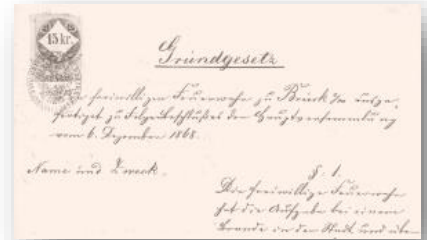 15 kr.
Grundgesetz
der freiwilligen Feuerwehr zu Bruck
zufolge Beschlußes der Hauptversammlung
vom 6. Dezember 1868.
Name und Zweck.
§. 1.
Die freiwillige Feuerwehr
hat die Aufgabe bei einem
Brande in der Stadt und